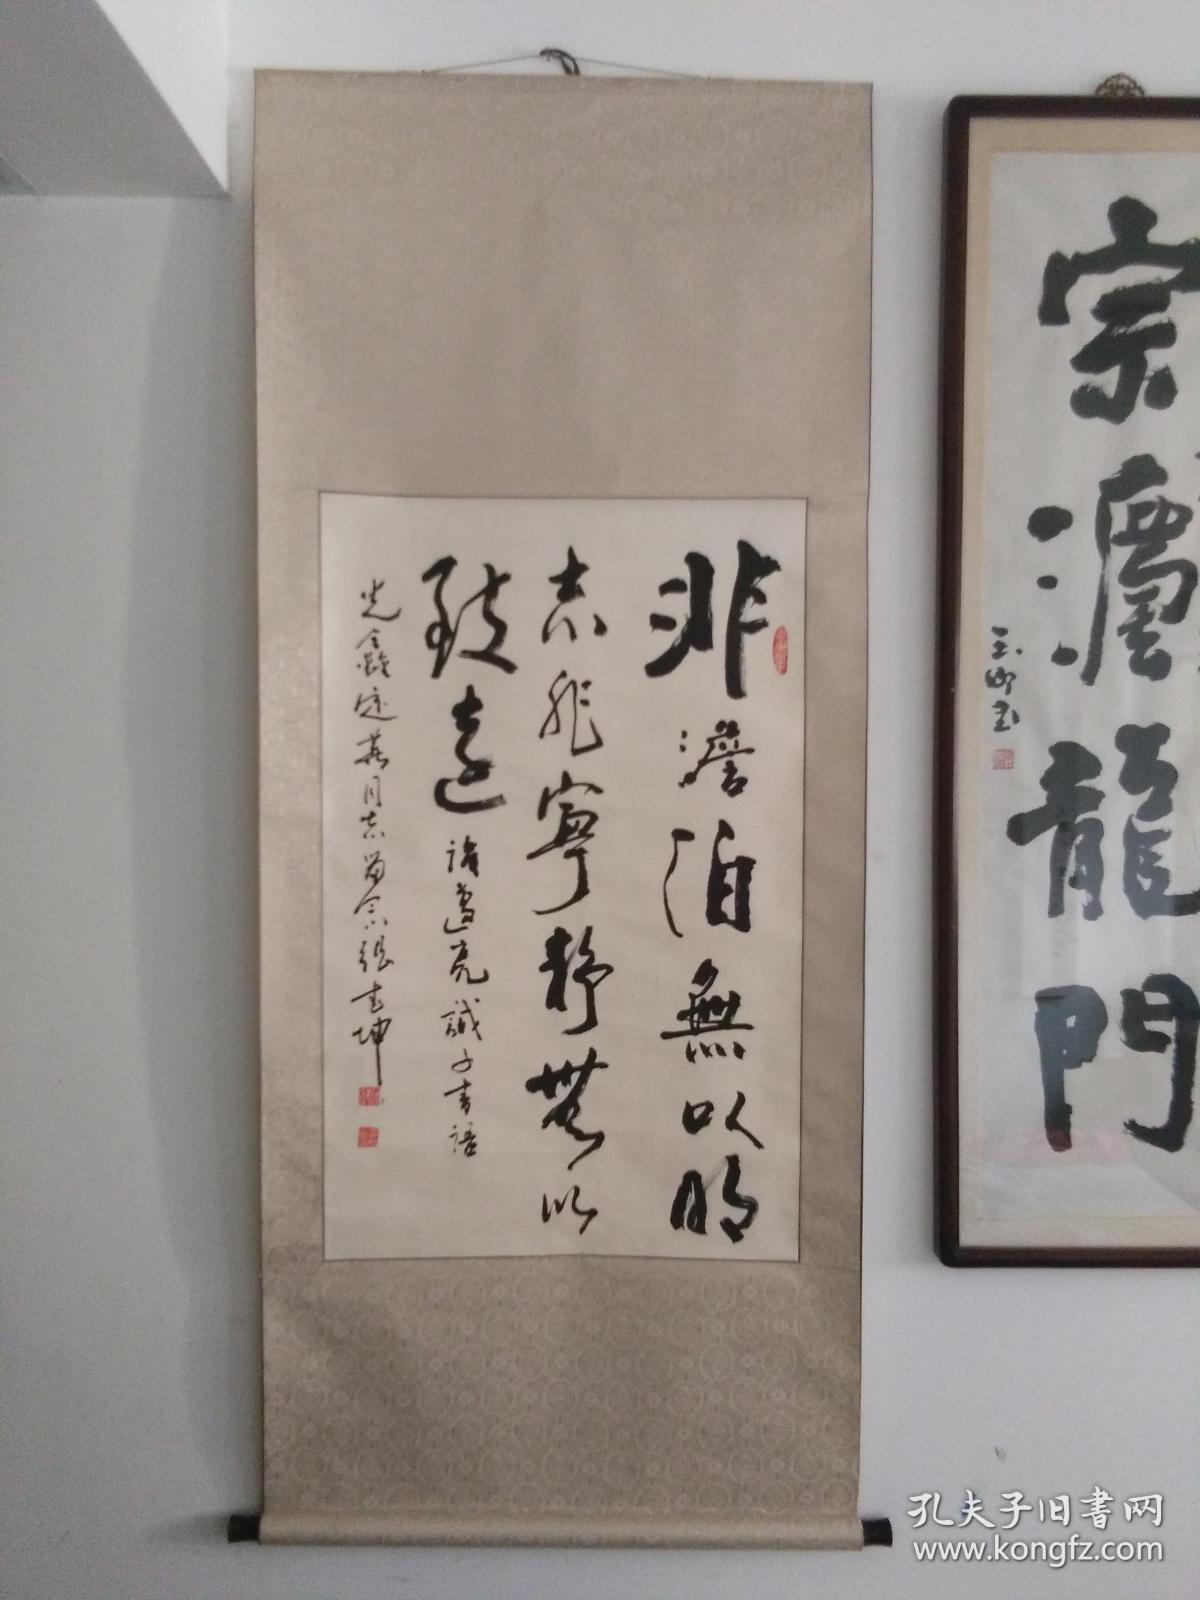 宗灋龍門
玉卿書
非澹泊無以明
志非寧靜無以
致遠 諸葛亮誡子書語
光鑫 燕同志留念 張志坤
孔夫子旧书网
www.kongfz.com